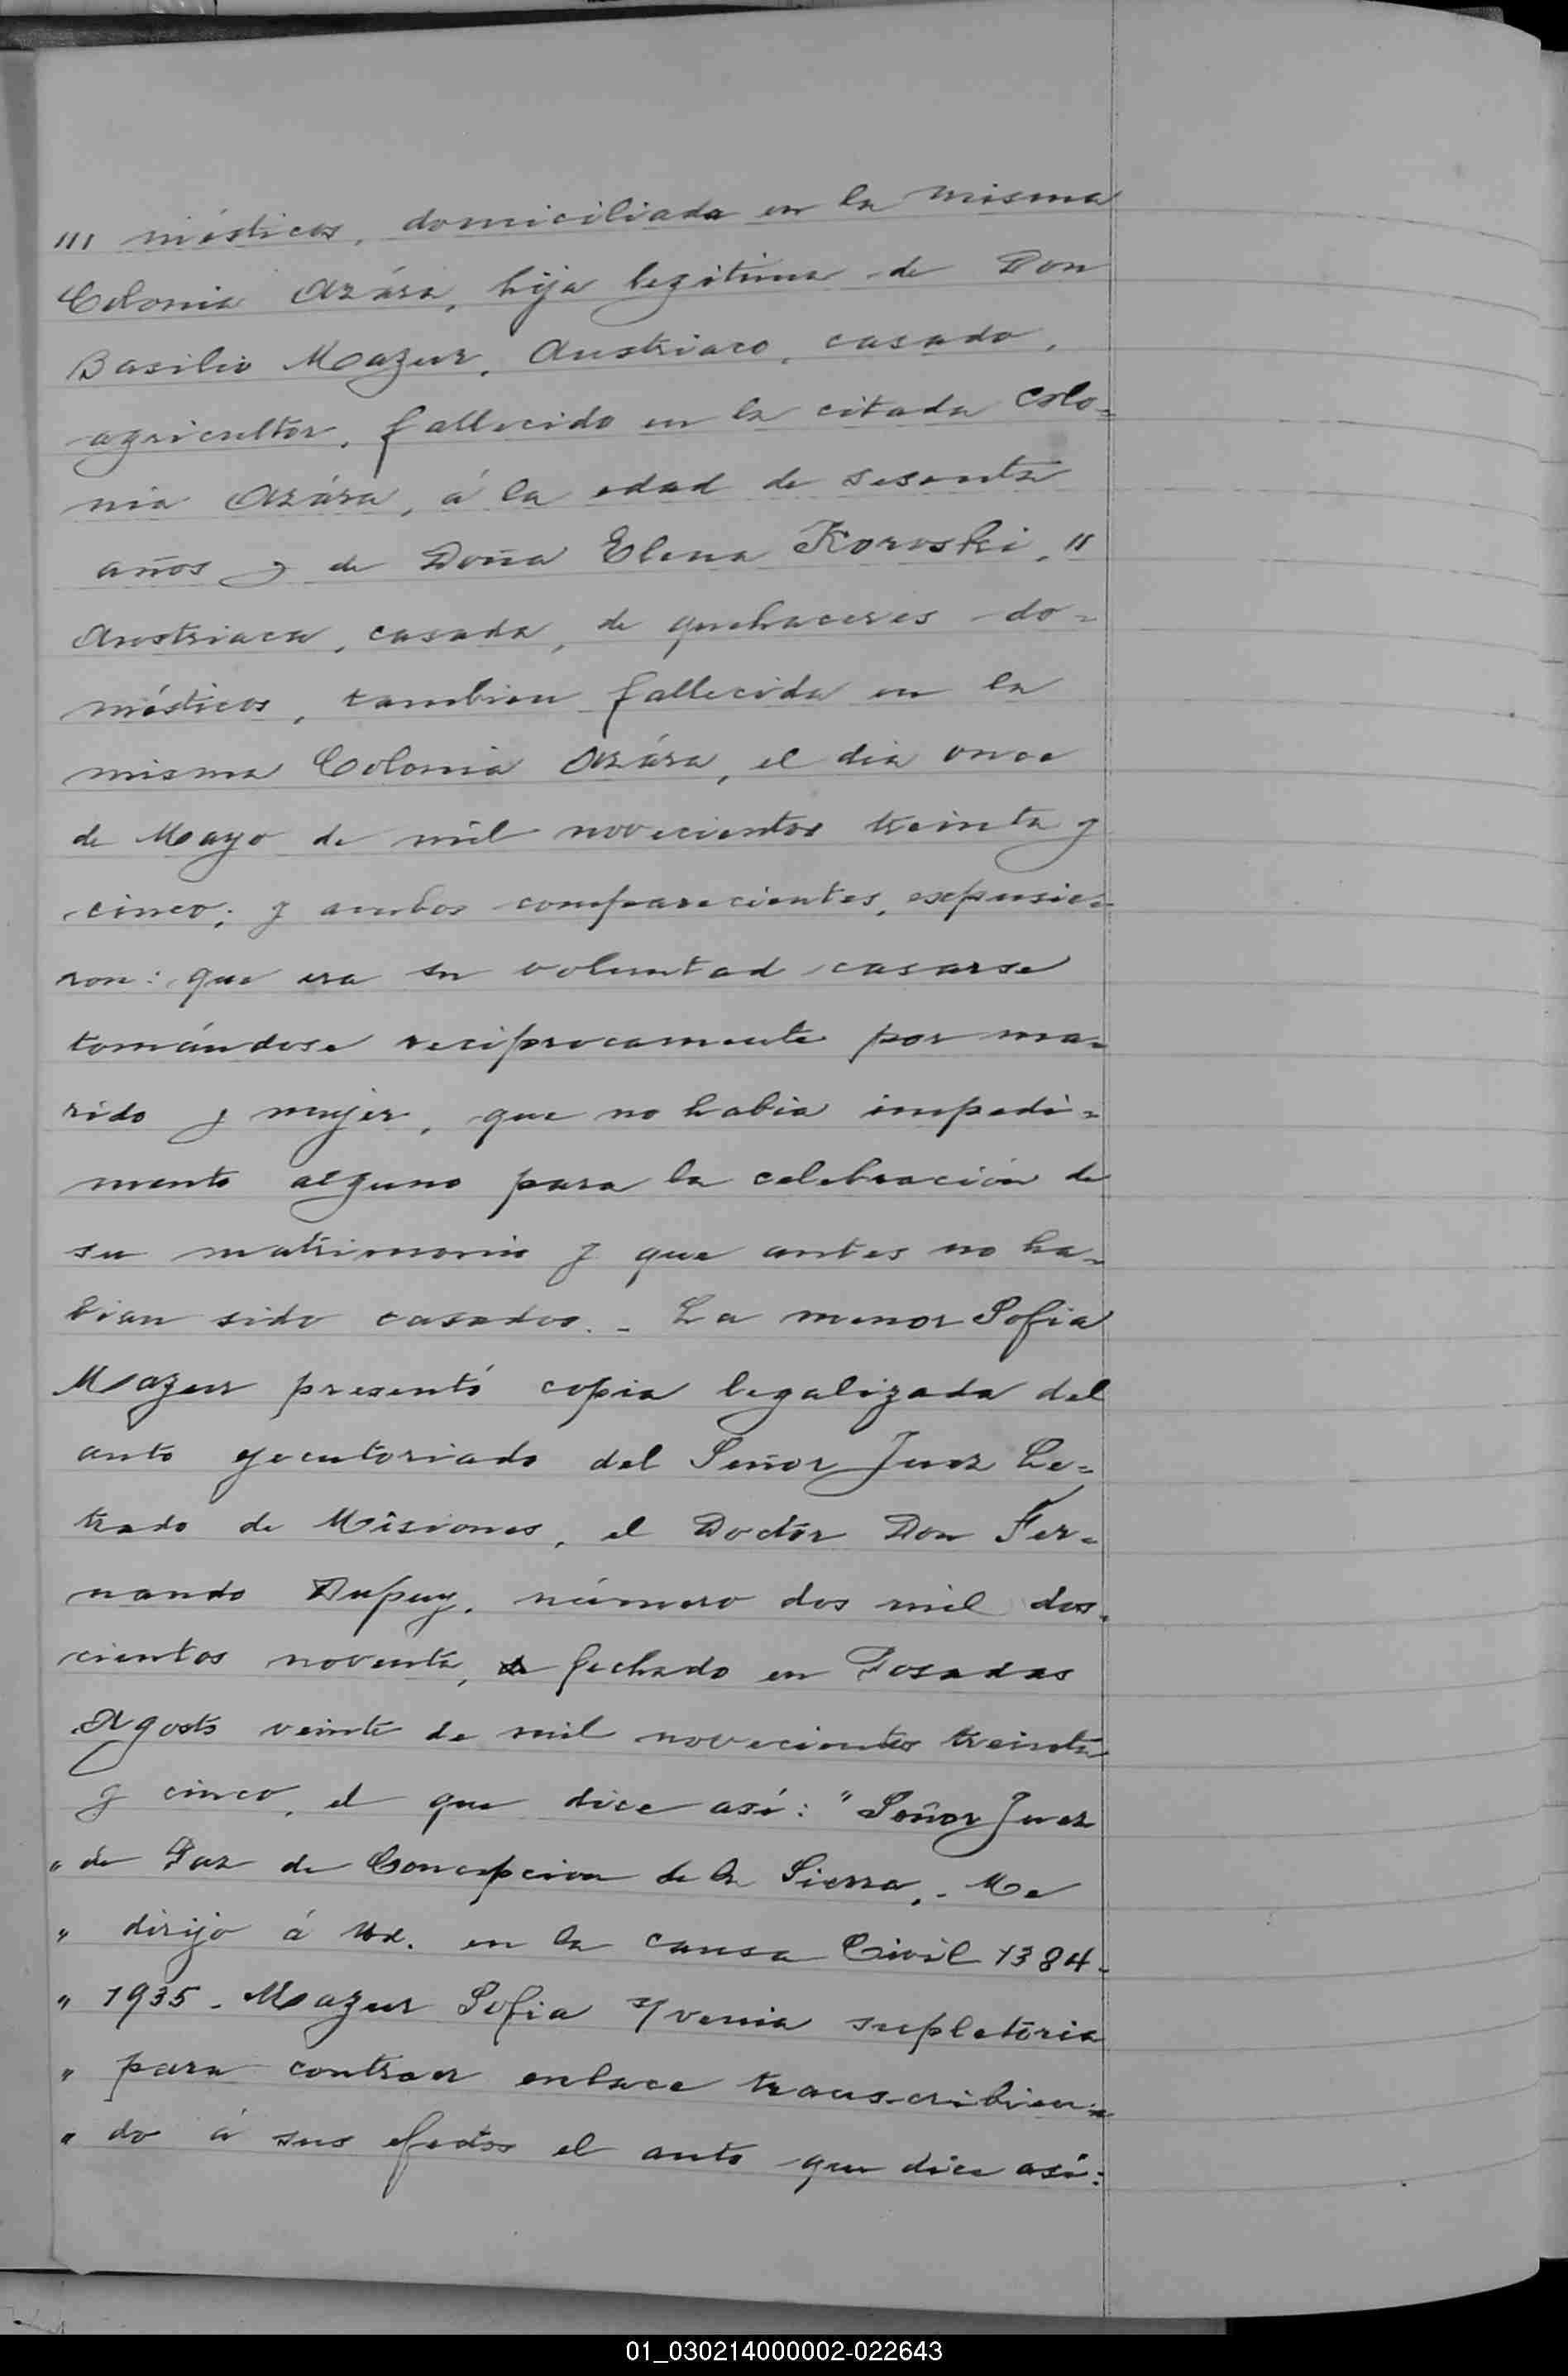 ''' mésticos, domiciliada en la misma
Colonia Azára, hija legitima de Don
Basilio Mazur, Austriaco, casado,
agricultor, fallecido en la citada Colo=
nia Azára, á la edad de sesenta
años y de Doña Elena Koroski, "
Austriaca, casada, de quehaceres do=
mésticos, tambien fallecida en la
misma Colonia Azára, el dia once
de Mayo de mil novecientos treinta y
cinco; y ambos comparecientes, expusie=
ron: que era su voluntad casarse
tomándose reciprocamente por ma=
rido y mujer, que no habia impedi=
mento alguno para la celebración de
su matrimonio y que antes no ha=
bian sido casados. - La menor Sofia
Mazur presentó copia legalizada del
auto ejecutoriado del Señor Juez Le=
trado de Misiones, el Doctor Don Fer=
nando Dupuy, número dos mil dos=
cientos noventa, fechado en Posadas
Agosto veinte de mil novecientos treinta
y cinco, el que dice así: "Señor Juez
" de Paz de Concepcion de la Sierra, - Me
" dirijo á Ud. en la causa Civil 1384-
" 1935 - Mazur Sofia s/venia supletoria
" para contraer enlace transcribien=
" do á sus efectos el auto que dice así:
01_030214000002-022643